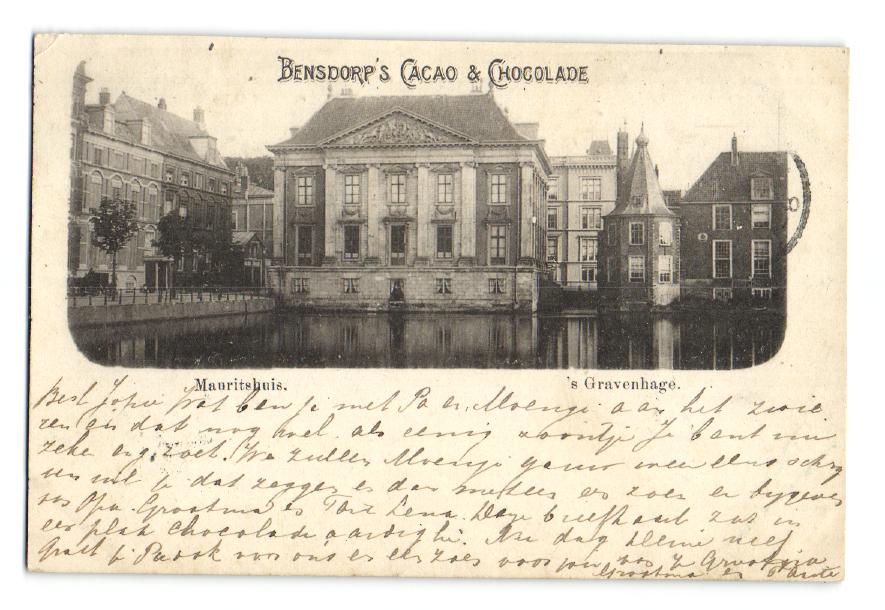 BENSDORP'S CACAO & CHOCOLADE
Mauritshuis.
's Gravenhage.
Best Jopie Wat ben je met Pa en Moenge aan het zwie
ren en dat nog wel als eenig zoontje Je bent nu
zeker erg zoet. We zullen Moenje gauw weer eens schrij
ven wil je dat zeggen en dan meteen een zoen er bijgeven
van Opa Grootma en Tante Lena. Deze briefkaart zat in
een plak chocolade aardig hè. Nu dag kleine neef
groet je Pa ook van ons en een zoen voor jou van je Grootpa
Grootma en Tante